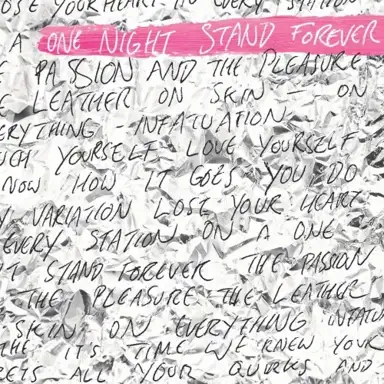 YOUR HEART IN EVERY STATION
A ONE NIGHT STAND FOREVER
E PASSION AND THE PLEASURE
E LEATHER ON SKIN - ON
ERYTHING - INFATUATION
UCH YOURSELF LOVE YOURSELF
NOW HOW IT GOES YOU DO
Y VARIATION LOSE YOUR HEART
EVERY STATION ON A ONE
T STAND FOREVER THE PASSION
THE PLEASURE THE LEATHER
SKIN ON EVERYTHING INFATU
THE IT'S TIME WE KNEW YOUR
RETS ALL YOUR QUIRKS AND